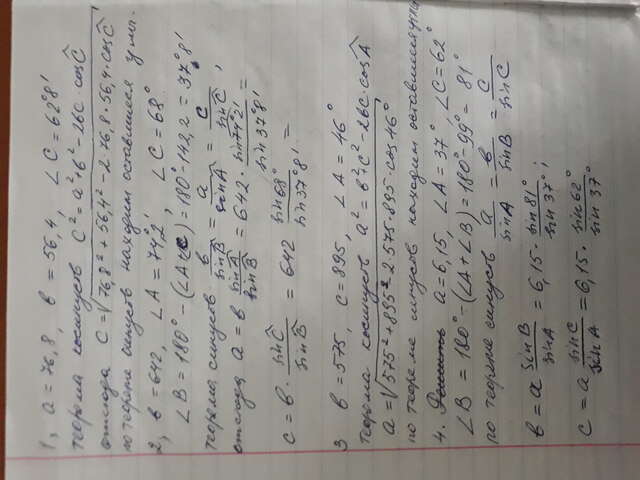 1, a = 76,8, в = 56,4, ∠C = 62°8'
теорема косинусов c² = a² + b² - 2bc · cosĈ
отсюда c = √76,8² + 56,4² - 2·76,8·56,4·cosĈ
по теореме синусов находим оставшиеся углы.
2, в = 642, ∠A = 74°2', ∠C = 68°
∠B = 180° - (∠A+C) = 180° - 142,2 = 37°8'
теорема синусов в/sinB̂ = a/sinÂ = c/sinĈ,
отсюда a = в sinÂ/sinB̂ = 642 · sin74°2'/sin37°8' =
c = в · sinĈ/sinB̂ = 642 sin68°/sin37°8' =
3 в = 575, c = 895, ∠A = 46°
теорема косинусов a² = в² + c² - 2вc · cosÂ
a = √575² + 895² - 2·575·895·cos46°
по теореме синусов находим оставшиеся углы
4. Решить a = 6,15, ∠A = 37°, ∠C = 62°
∠B = 180° - (∠A + ∠B) = 180° - 99° = 81°
по теореме синусов a/sinA = в/sinB = c/sinC
в = a sinB/sinA = 6,15 · sin81°/sin37°;
c = a sinC/sinA = 6,15 · sin62°/sin37°